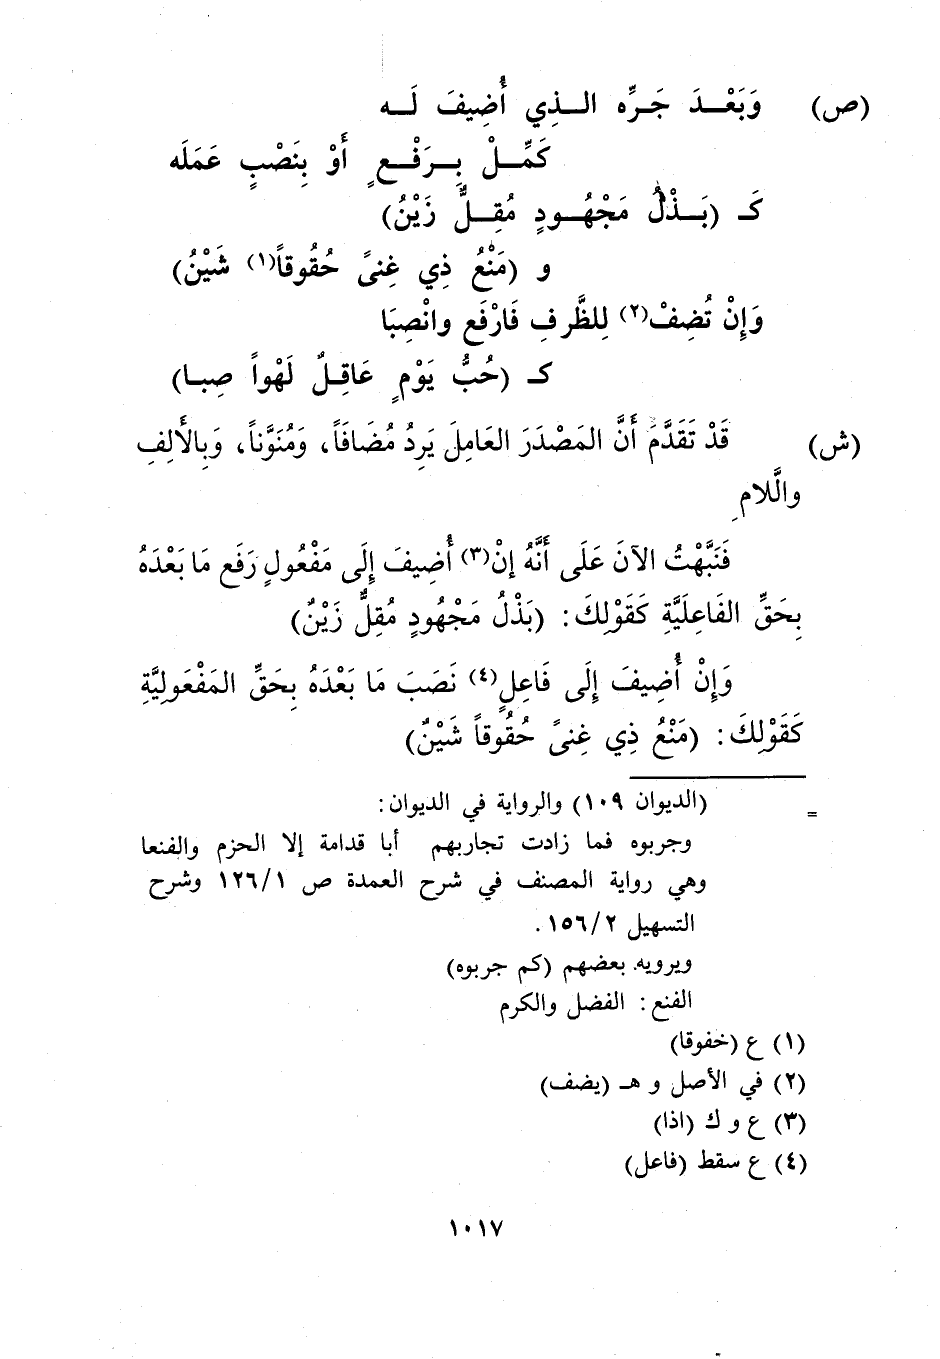 (ص) وَبَعْدَ جَرِّه الذي أُضِيفَ لَه
كَمِّلْ بِرَفْعٍ أَوْ بِنَصْبٍ عَمَلَه
كَـ (بَذْلُ مَجْهُودٍ مُقِلٌّ زَيْنُ)
و (مَنْعُ ذِي غِنىً حُقُوقاً(١) شَيْنُ)
وَإِنْ تُضِفْ(٢) لِلظَّرفِ فَارْفَع وانْصِبَا
كـ (حُبُّ يَوْمٍ عَاقِلٌ لَهْواً صِبا)
(ش) قَدْ تَقَدَّمَ أَنَّ المَصْدَرَ العَامِلَ يَرِدُ مُضَافَاً، وَمُنَوَّناً، وَبِالأَلِفِ
والَّلامِ
فَنَبَّهْتُ الآنَ عَلَى أَنَّهُ إنْ(٣) أُضِيفَ إِلَى مَفْعُولٍ رَفَع مَا بَعْدَهُ
بِحَقِّ الفَاعِلَيَّةِ كَقَوْلِكَ: (بَذْلُ مَجْهُودٍ مُقِلٌّ زَيْنٌ)
وَإِنْ أُضِيفَ إِلَى فَاعِلٍ(٤) نَصَبَ مَا بَعْدَهُ بِحَقِّ المَفْعَولِيَّةِ
كَقَوْلِكَ: (مَنْعُ ذِي غِنىً حُقُوقاً شَيْنٌ)
= (الديوان ١٠٩) والرواية في الديوان:
وجربوه فما زادت تجاربهم أبا قدامة إلا الحزم والفنعا
وهي رواية المصنف في شرح العمدة ص ١٢٦/١ وشرح
التسهيل ١٥٦/٢.
ويرويه بعضهم (كم جربوه)
الفنع: الفضل والكرم
(١) ع (خفوقا)
(٢) في الأصل و هـ (يضف)
(٣) ع و ك (اذا)
(٤) ع سقط (فاعل)
١٠١٧